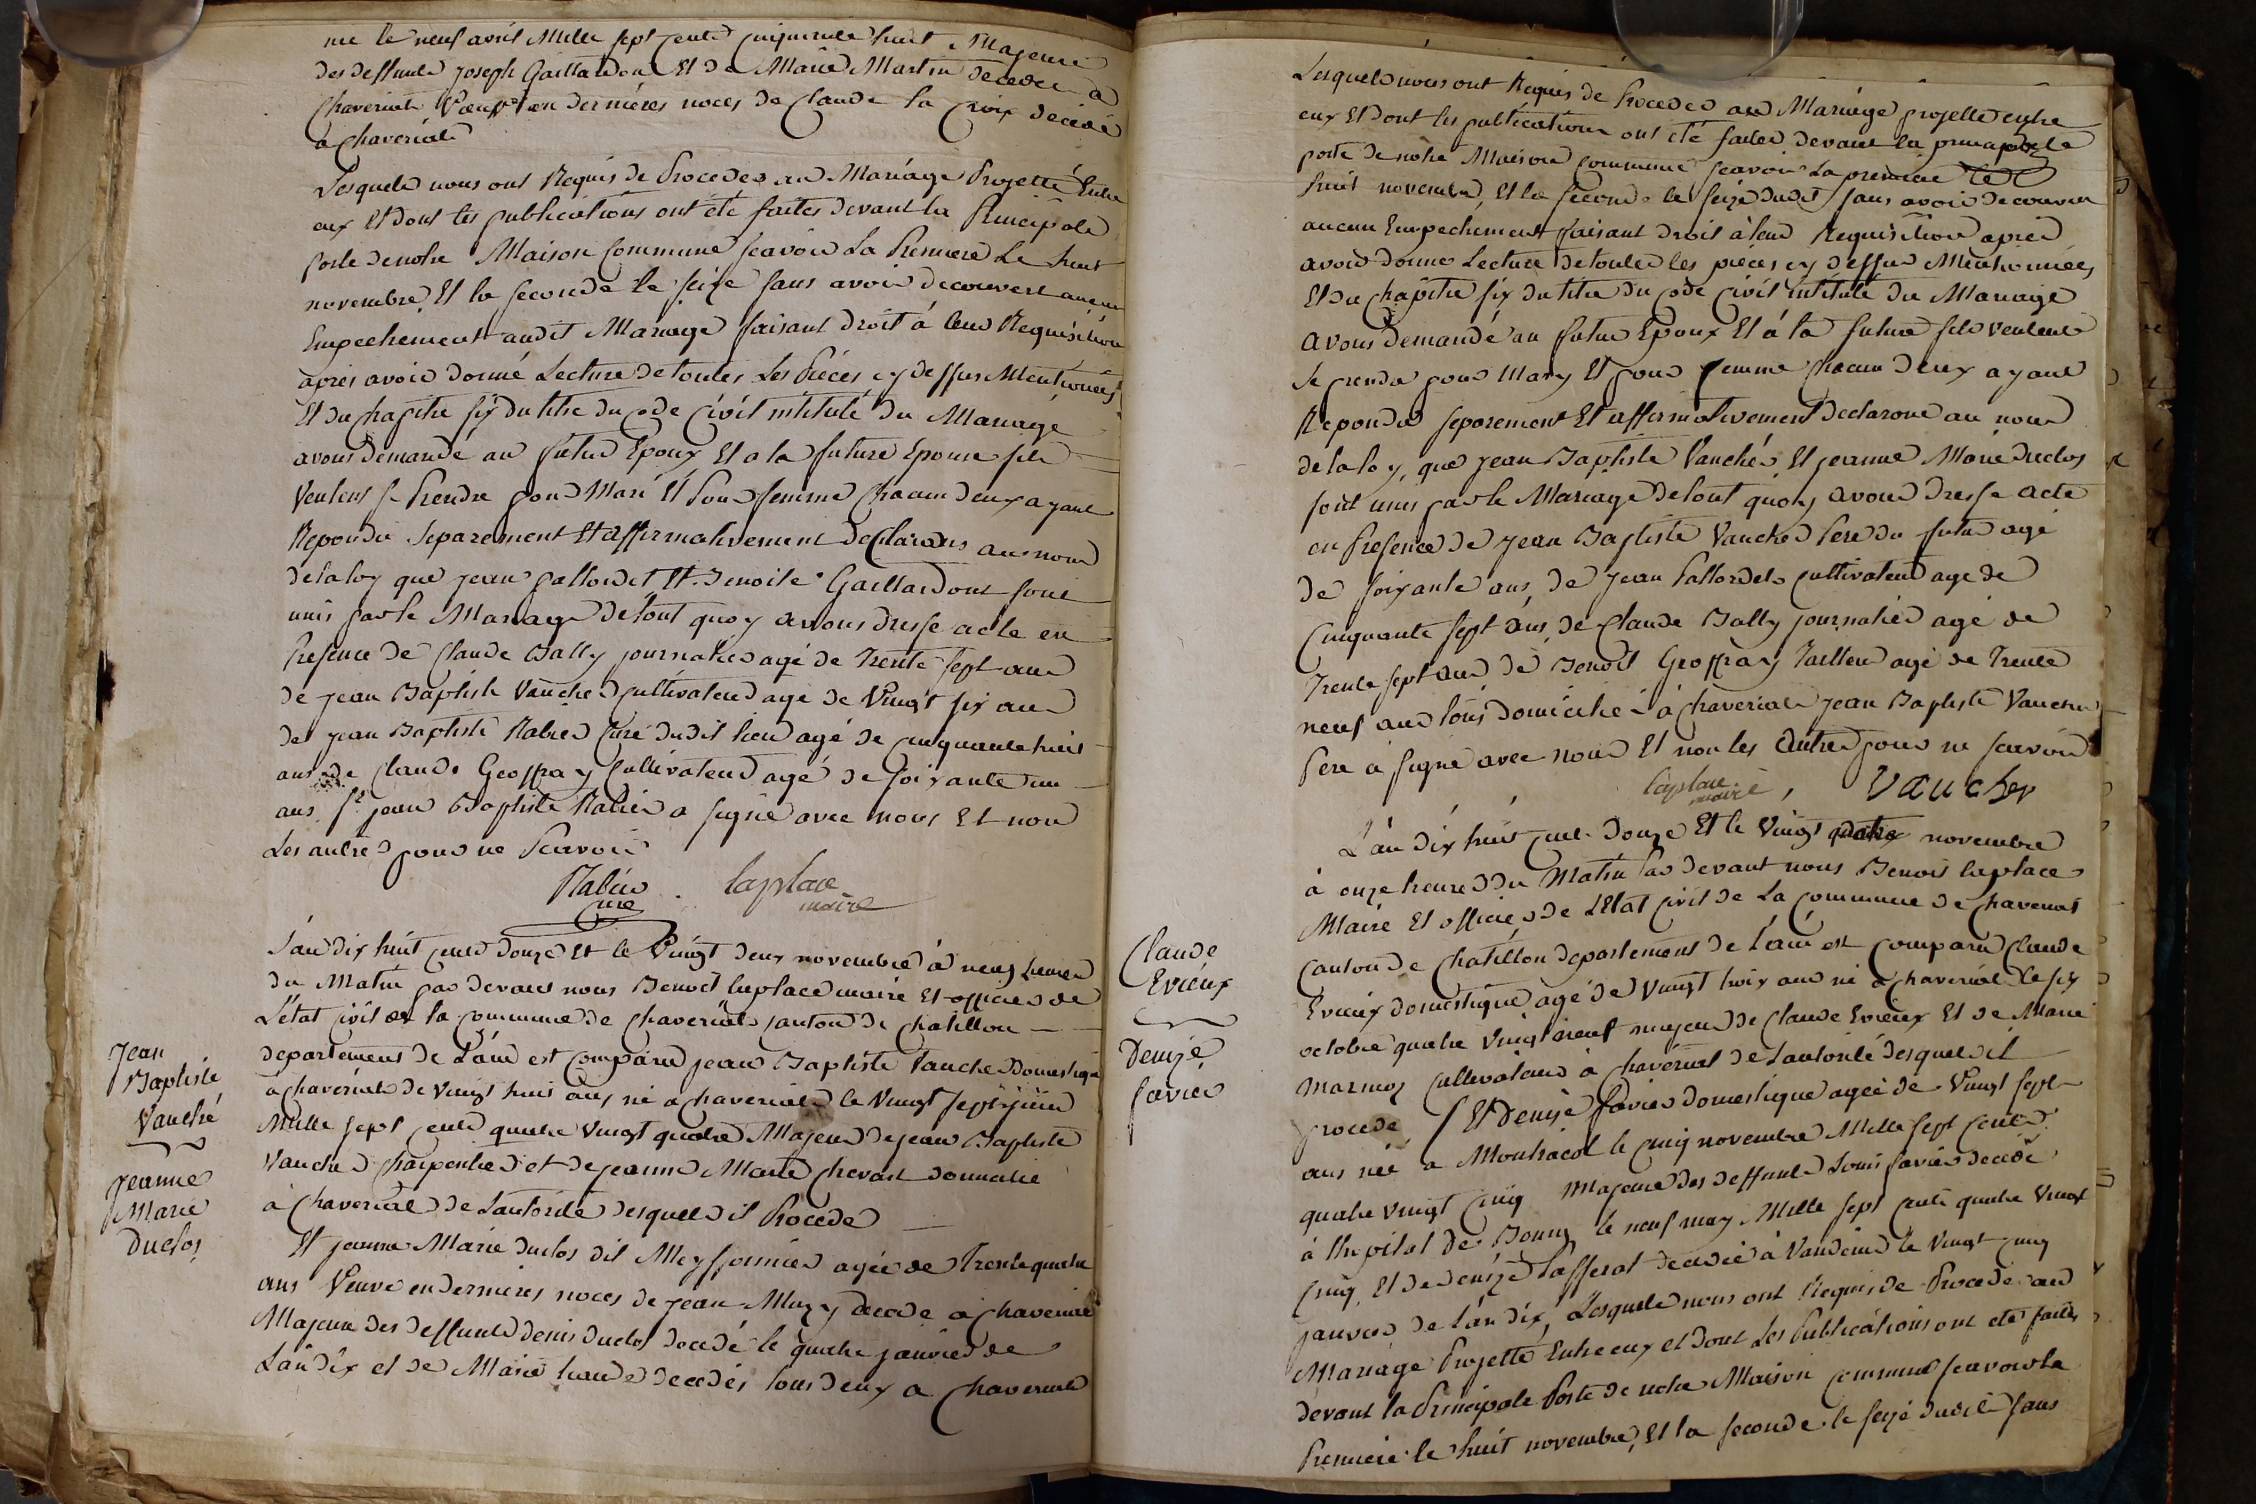 née le neuf avril Mille sept cents cinquante huit Majeure
des deffunts joseph Gaillardon Et de Marie Martin décedée à
Chaveriat Veuve en dernières noces de Claude la Croix décedé
à Chaveriat
Lesquels nous ont Requis de Proceder au Mariage Projetté Entre
eux Et dont les publications ont été faites devant la Principale
porte de notre Maison Commune scavoir La Premiere Le huit
novembre Et la seconde le seize sans avoir decouvert aucun
Empechement audit Mariage faisant droit à leur Requisition
après avoir donné Lecture de toutes Les Pièces cy dessus Mentionnées
Et du Chapitre six du titre du Code Civil intitulé du Mariage
avons demandé au futur Epoux Et a la future Epouse sils
Veulent se Prendre pour Mari Et Pour femme Chacun deux ayant
Repondu Separement Et affirmativement declarons au nom
de la loy que jean pallordet Et Benoite Gaillardont sont
unis par le Mariage de tout quoy avons dresse acte en
Presence de Claude Bally journalier agé de Trente sept ans
de jean Baptiste Vaucher cultivateur agé de Vingt six ans
de jean Baptiste Rabier Curé dudit lieu agé de cinquante huit
ans de Claude Geoffray Cultivateur agé de soixante un
ans St jean Baptiste Rabier a signé avec nous Et non
Les autres pour ne Scavoir
Rabier laplace
Curé maire
L'an dix huit cents douze Et le Vingt deux novembre à neuf heures
du Matin par devant nous Benoit laplace maire Et officier de
L'état civil de la commune de Chaveriat canton de Chatillon
departement de L'ain est comparu jean Baptiste Vaucher Domestique
à Chaveriat de Vingt huit ans né a Chaveriat le Vingt sept juin
Mille sept cents quatre Vingt quatre Majeur de jean Baptiste
Vaucher Charpentier et de jeanne Marie Chevart domicilié
à Chaveriat de Lautorité desquels il Procede
Jean
Baptiste
Vauché
jeanne
Marie
Duclos
Et jeanne Marie duclos dit Meyssonnier agée de Trente quatre
ans Veuve en dernieres noces de jean Mury décedé a Chaveriat
Majeure des deffunts denis duclos décedé le quatre janvier de
Lan dix et de Marie decedés tous deux a Chaveriat
Lesquels nous ont Requis de Proceder au Mariage projetté entre
eux Et dont les publications ont été faites devant la principale
porte de notre Maison commune scavoir La premiere le
huit novembre, Et la seconde le seize dudit sans avoir decouvert
aucun Empechement faisant droit à leur Requisition après
avoir donné Lecture de toutes les pièces cy dessus Mentionnées
Et du Chapitre six du titre du Code Civil intitulé du Mariage
avons demandé au futur Epoux Et à la future sils veulent
se prendre pour Mary Et pour femme Chacun deux ayant
Repondus separement Et affirmativement declarons au nom
de la loy, que jean Baptiste Vaucher Et jeanne Marie duclos
sont unis par le Mariage de tout quoy avons dresse acte
en Presence de jean Baptiste Vaucher Pere du futur agé
de soixante ans, de jean Pallordet cultivateur agé de
Cinquante sept ans, de Claude Bally journalier agé de
Trente sept ans de Benoit Geoffray Tailleur agé de Trente
neuf ans tous domiciliés à Chaveriat jean Baptiste Vaucher
Pere a signé avec nous Et non les autres pour ne scavoir
laplace VaucheR
maire
L'an dix huit cent Douze Et le Vingt quatre novembre
à onze heures du Matin Par devant nous Benoit laplace
Maire Et officier de L'Etat civil de La Commune de Chaveriat
Canton de Chatillon departement de l'ain est comparu Claude
Evrieux domestique agé de Vingt trois ans né a Chaveriat le six
octobre quatre Vingt neuf majeur de Claude Evrieux Et de Marie
Marmoz cultivateurs à Chaveriat de Lautorité desquels il
procede Et Denize favier domestique agée de Vingt sept
ans née a Montracol le cinq novembre Mille sept cents
quatre vingt cinq Majeure des deffunts Louis favier decedé
à lhopital de Bourg le neuf may Mille sept cents quatre Vingt
Claude
Evrieux
Denize
favier
cinq, Et de denize decedée à Vandeins le Vingt cinq
janvier de l'an dix, Lesquels nous ont Requis de Proceder au
Mariage Projetté Entre eux et dont Les Publications ont été faites
devant la Principale Porte de notre Maison commune scavoir la
Premiere le huit novembre, Et la seconde le seize dudit sans